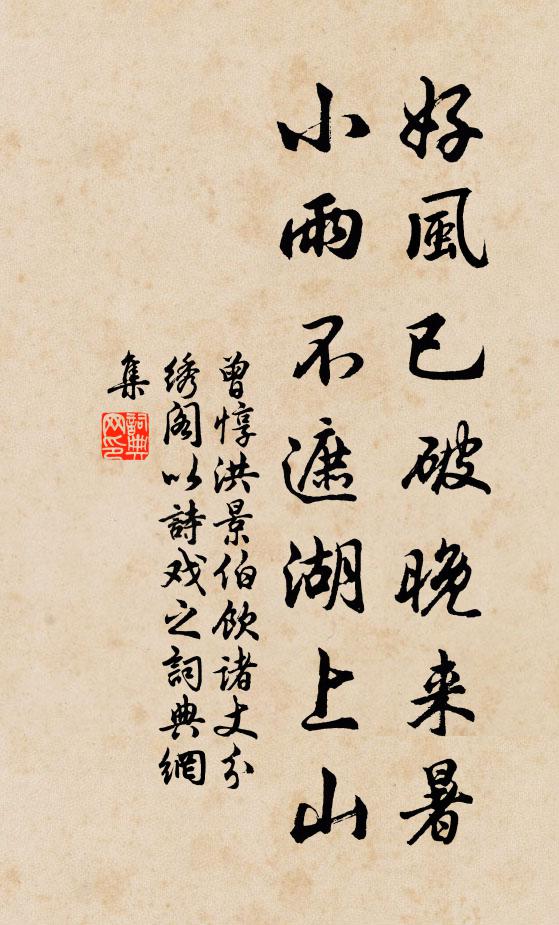 好風已破晚来暑
小雨不遮湖上山
曾惇洪景伯飲諸丈分
綉阁以詩戏之詞典網
集
詞典
网印